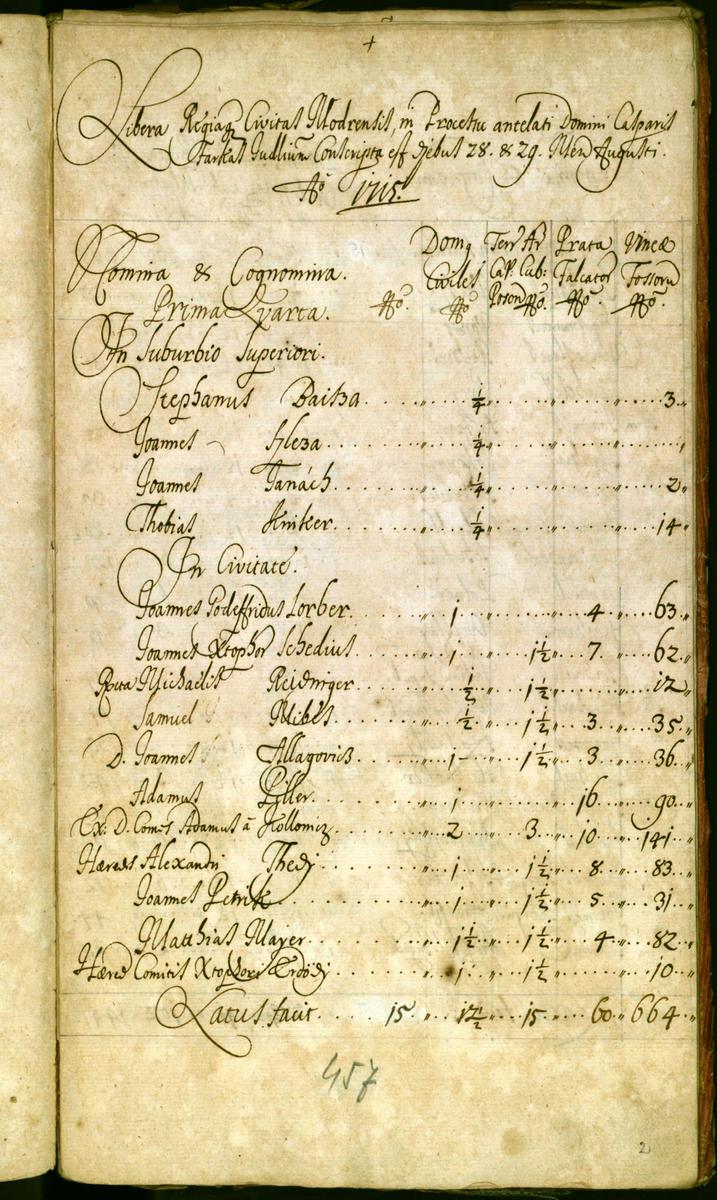 Libera Regiaq Civitas Modrensis, in Processu antelati Domini Casparis
Farkas Judlium Conscripta est diebus 28. & 29. Mens Augusti.
Aō 1715.
Nomina & Cognomina. Domq Civiles Nō. Terr Ar Cap. Cub: Poson Nō. Prata Falcator Nō. Vineæ Fossoru Nō.
Prima Quarta. Nō.
In Suburbio Superiori.
Stephanus Baitza 1/4 3
Joannes Hleza 1/4
Joannes Tanách 1/4 2
Thobias Kniker 1/4 14
In Civitate.
Joannes Godeffridus Lorber 1 4 63
Joannes Xtophor Schedius 1 1 1/2 7 62
Michaelis Reidniger 1/2 1 1/2 12
Samuel Mibes 1/2 1 1/2 3 35
D. Joannes Allagovics 1 1 1/2 3 36
Adamus Piller 1 16 90
Ex: D. Comes Adamus à Kollonicz 2 3 10 141
Hæredes Alexandri Thedy 1 1 1/2 8 83
Joannes Petrik 1 1 1/2 5 31
Matthias Mayer 1 1/2 1 1/2 4 82
Hæred Comitis Xtophori Erdödy 1 1 1/2 10
Latus facit 15 12 1/2 15 60 664
457
2